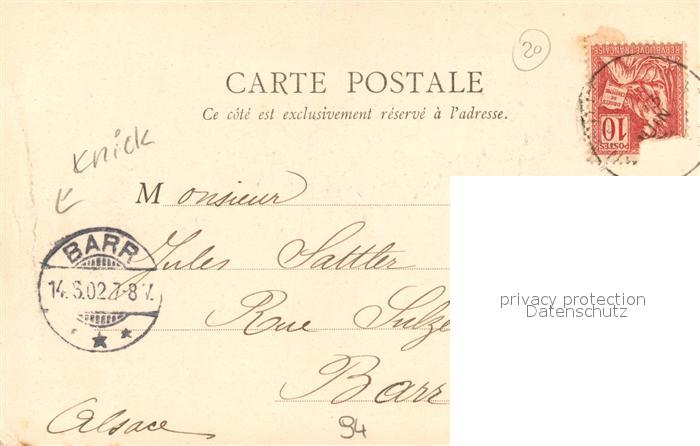 20
CARTE POSTALE
Ce côté est exclusivement réservé à l'adresse.
REPUBLIQUE FRANÇAISE
POSTES
10
Knick
Monsieur
BARR
14.6.02.7-8V.
Jules Sattler
Rue
Barr
Alsace
94
privacy protection
Datenschutz